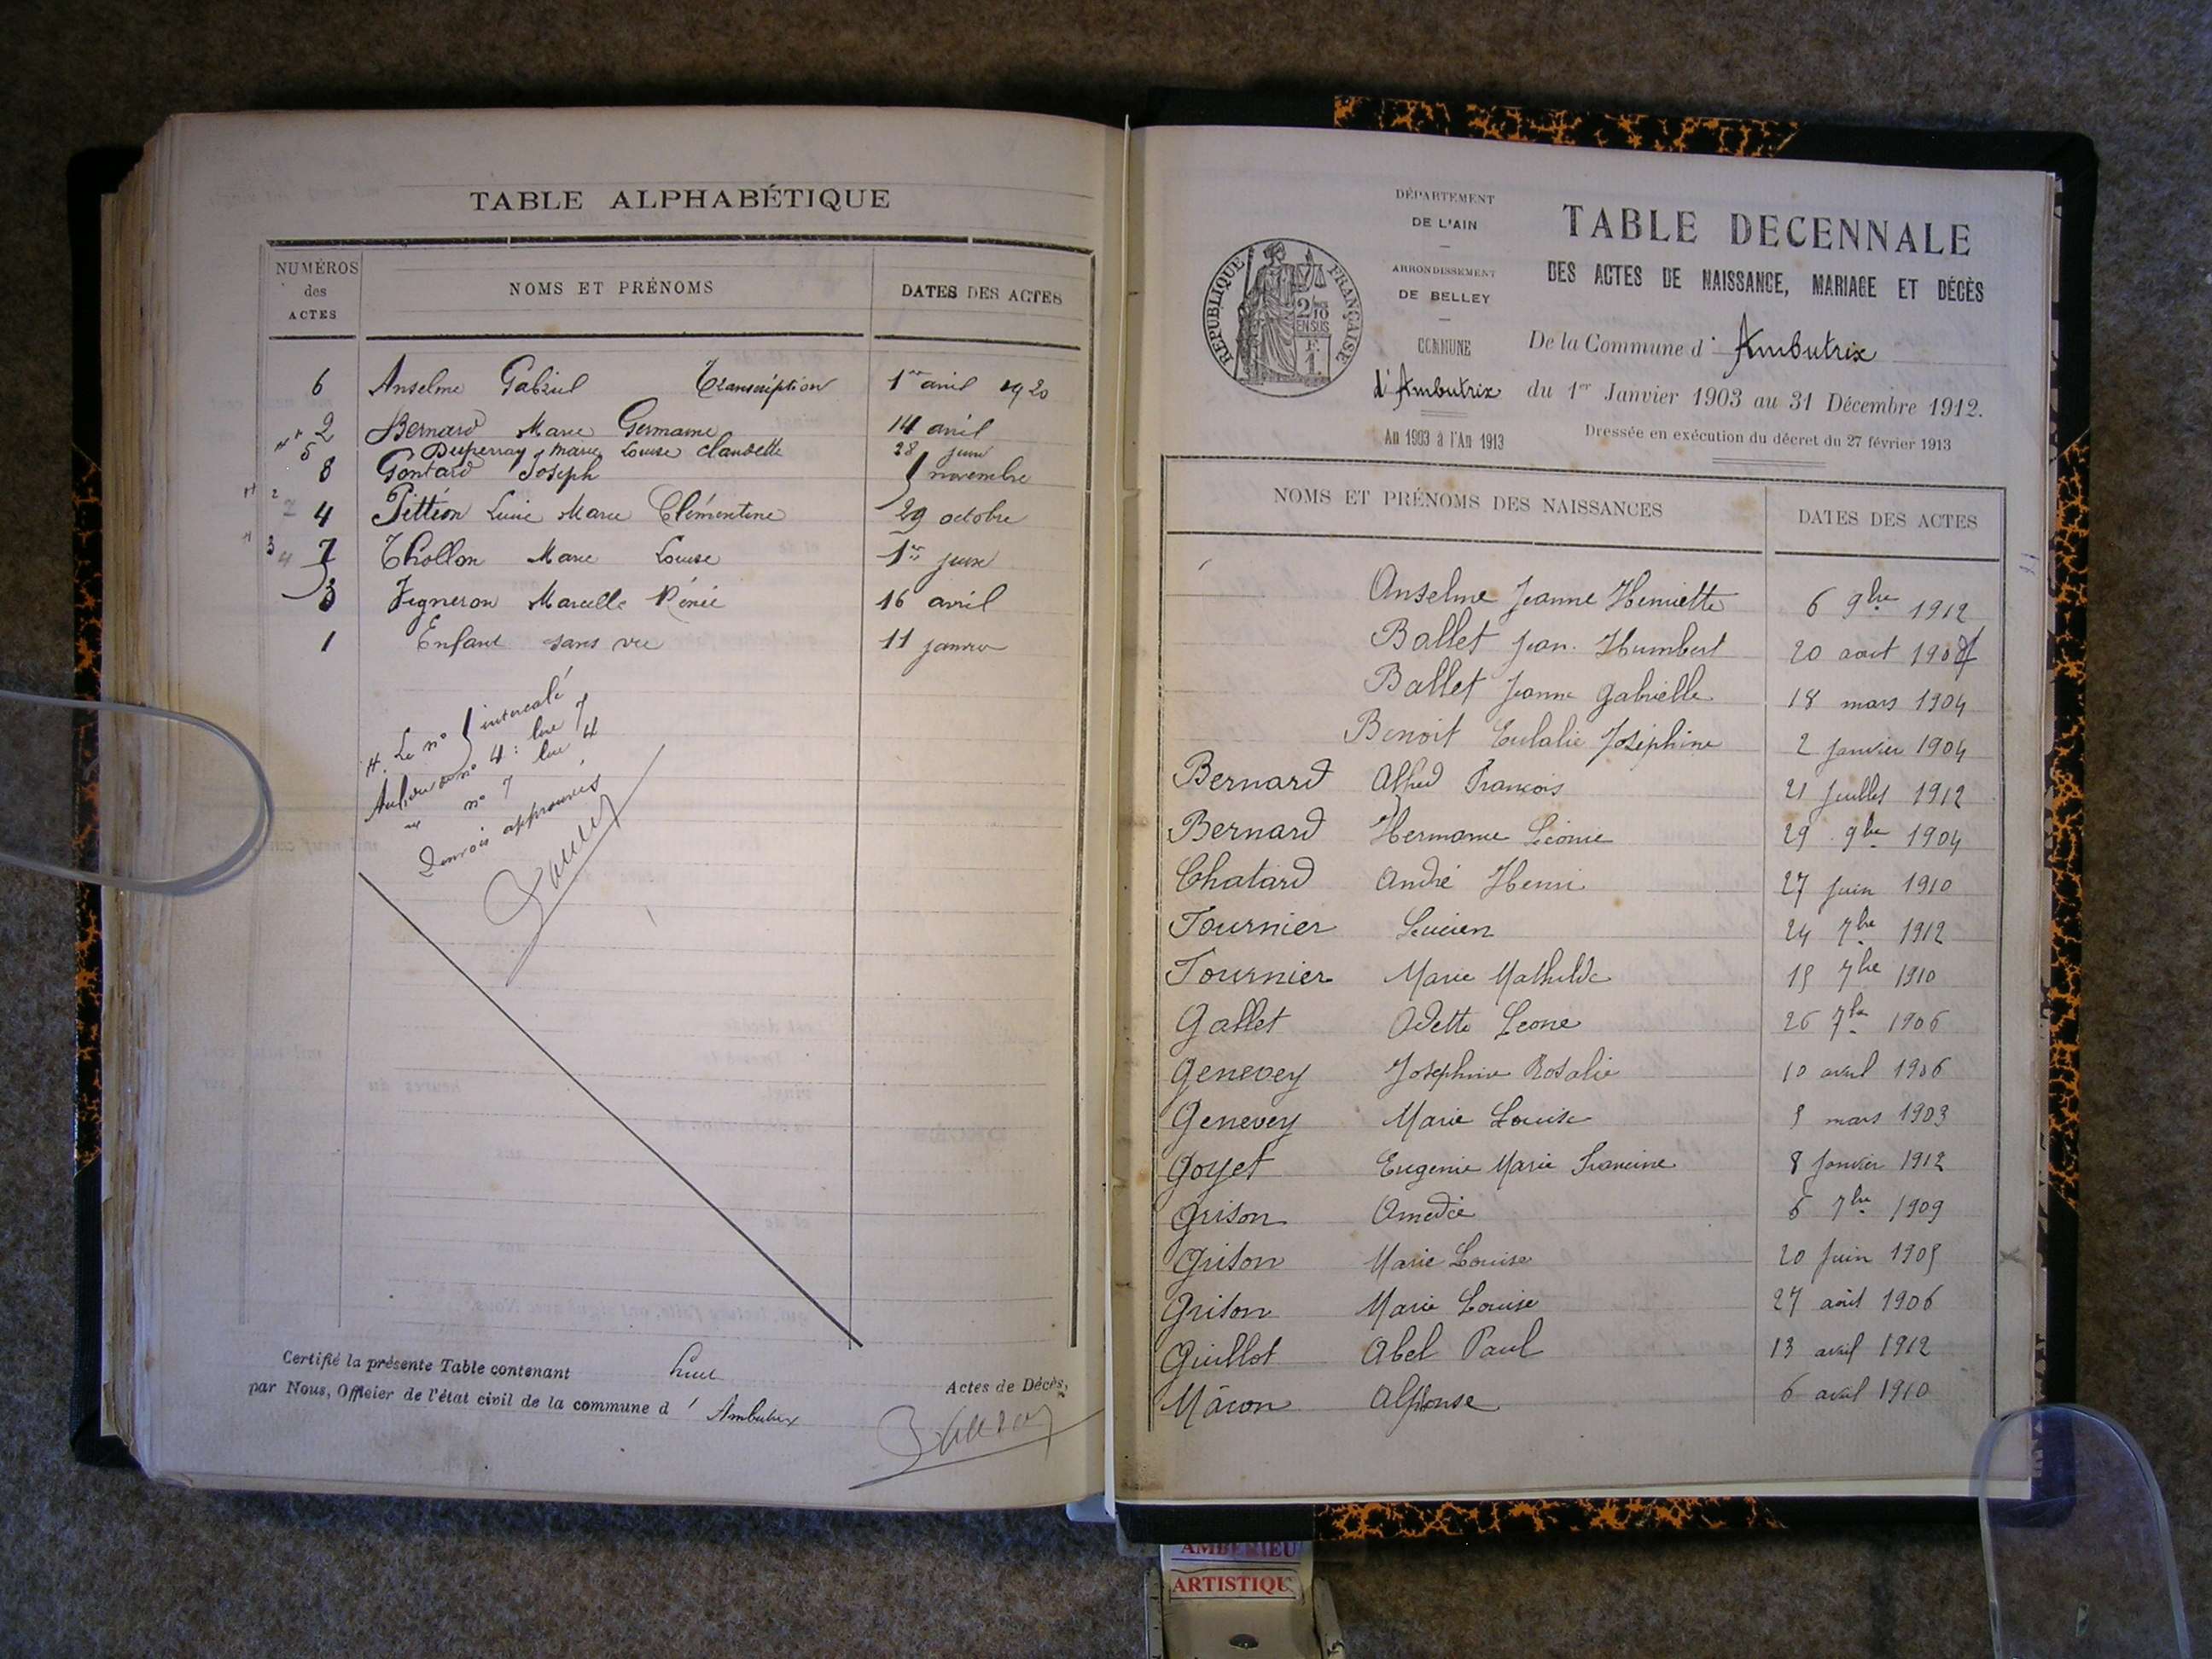 TABLE ALPHABÉTIQUE
NUMÉROS des ACTES
NOMS ET PRÉNOMS
DATES DES ACTES
6 Anselme Gabriel Transcription 1er avril 1920
2 Bernard Marie Germaine 14 avril
5 Duperray Marie Louise Claudette 28 juin
8 Gontard Joseph novembre
4 Pittion Lucie Marie Clémentine 29 octobre
7 Thollon Marie Louise 1er juin
3 Vigneron Marcelle Rénée 16 avril
1 Enfant sans vie 11 janvier
Le n° 5 intercalé
Au lieu de n° 4 : lire 7
n° 7 lire 4
Renvois approuvés
Certifié la présente Table contenant huit Actes de Décès,
par Nous, Officier de l'état civil de la commune d' Ambutrix
DÉPARTEMENT
DE L'AIN
ARRONDISSEMENT
DE BELLEY
COMMUNE
d'Ambutrix
An 1903 à l'An 1913
RÉPUBLIQUE FRANÇAISE
2/10
EN SUS
F.
1.
TABLE DECENNALE
DES ACTES DE NAISSANCE, MARIAGE ET DÉCÈS
De la Commune d' Ambutrix
du 1er Janvier 1903 au 31 Décembre 1912.
Dressée en exécution du décret du 27 février 1913
NOMS ET PRÉNOMS DES NAISSANCES
DATES DES ACTES
Anselme Jeanne Henriette 6 9bre 1912
Ballet Jean Humbert 20 août 1907
Ballet Jeanne Gabrielle 18 mars 1904
Benoit Eulalie Joséphine 2 Janvier 1904
Bernard Alfred François 21 Juillet 1912
Bernard Hermance Léonie 29 9bre 1904
Chatard André Henri 27 Juin 1910
Fournier Lucien 24 7bre 1912
Fournier Marie Mathilde 15 7bre 1910
Gallet Odette Leone 26 7bre 1906
Genevey Joséphine Rosalie 10 avril 1906
Genevey Marie Louise 5 mars 1903
Goyet Eugenie Marie Francine 8 Janvier 1912
Grison Amedée 6 7bre 1909
Grison Marie Louise 20 Juin 1905
Grison Marie Louise 27 août 1906
Guillot Abel Paul 13 avril 1912
Mâcon Alphonse 6 avril 1910
AMBERIEU
ARTISTIQU